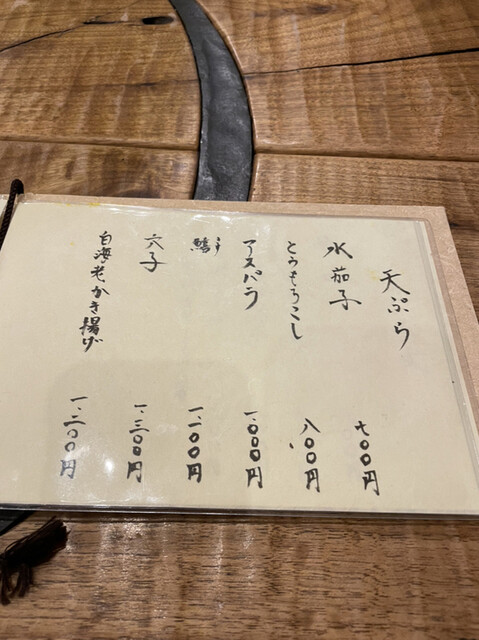 天ぷら
水茄子 七〇〇円
とうもろこし 八〇〇円
アスパラ 一、〇〇〇円
鱚 きす 一、一〇〇円
穴子 一、三〇〇円
白海老かき揚げ 一、三〇〇円